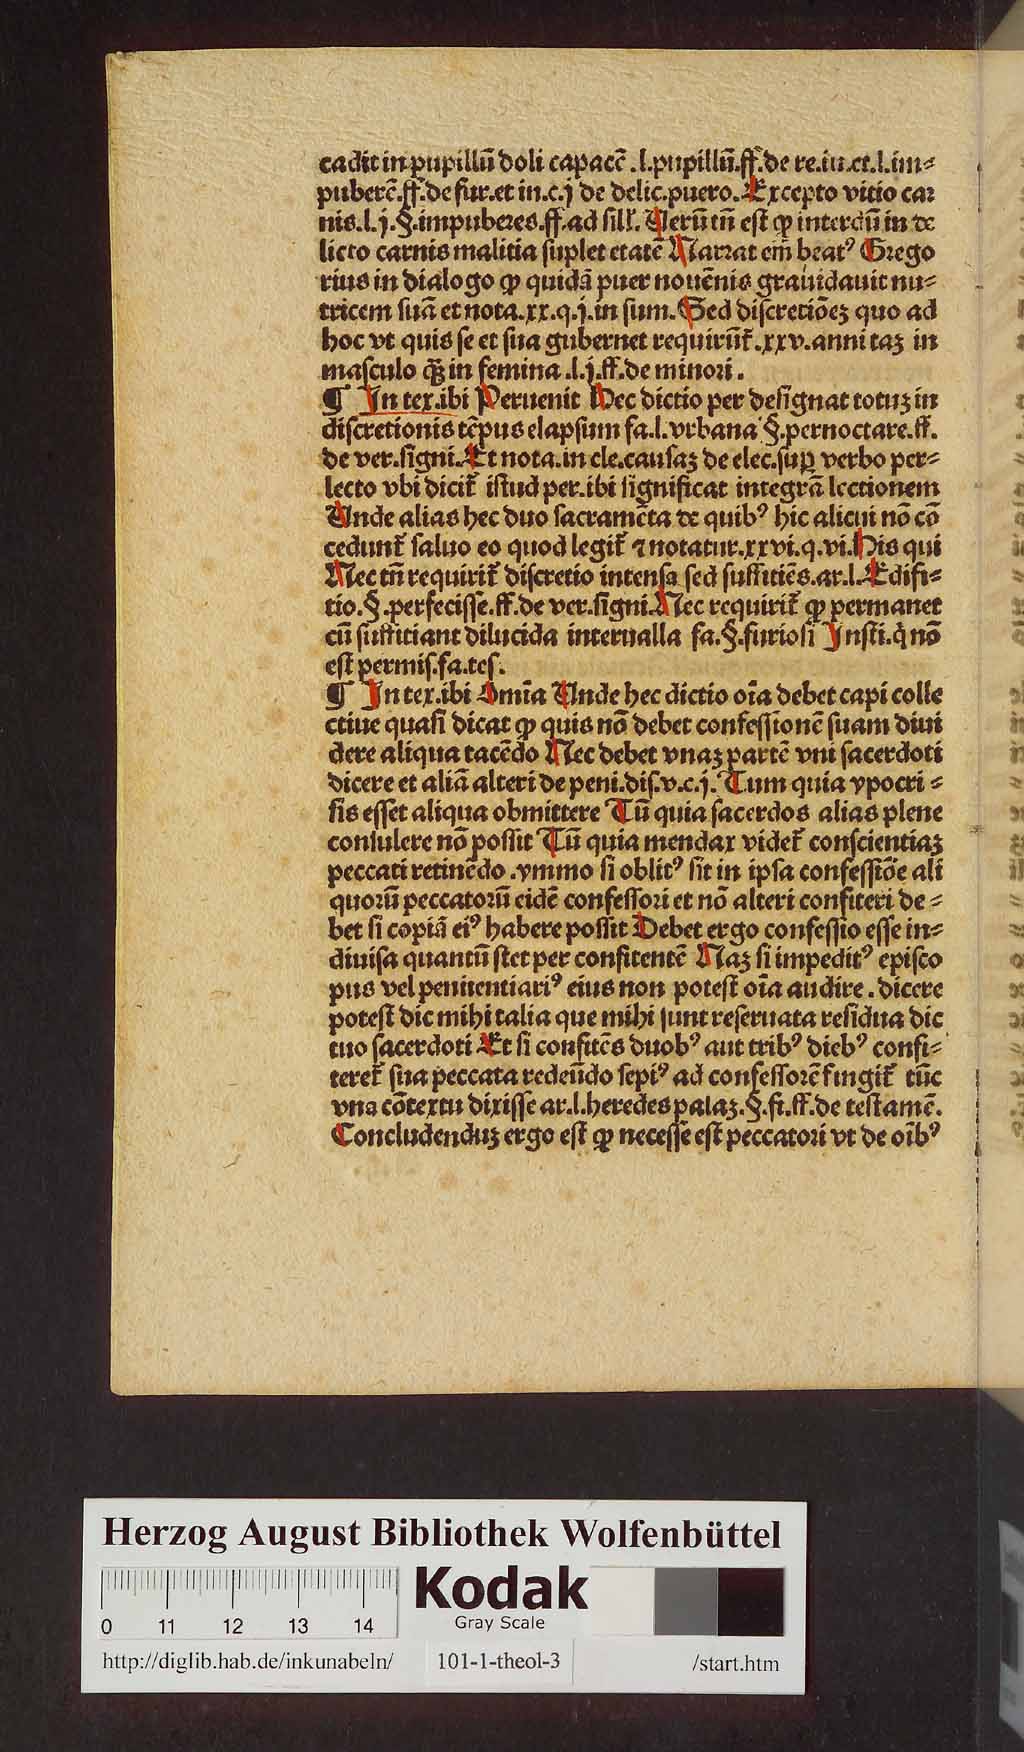 cadit in pupillū doli capacē .l.pupillū.ff.de re.iu.et.l.im⸗
puberē.ff.de fur.et in.c.j de delic.puero. Excepto vitio car
nis.l.j.§.impuberes.ff.ad sill'. Verūtñ est ꝙ interdū in de
licto carnis malitia suplet etatē Narrat em̄ beatꝰ Grego
rius in dialogo ꝙ quidā puer nouēnis grauidauit nu⸗
tricem suā et nota.xx.q.j.in sum. Sed discretiōeꝫ quo ad
hoc vt quis se et sua gubernet requirūt̄.xxv.anni taꝫ in
masculo qꝫ̄ in femina .l.j.ff.de minori.
¶ In tex.ibi Peruenit Hec dictio per designat totuꝫ in
discretionis tēpus elapsum fa.l.vrbana §.pernoctare.ff.
de ver.signi. Et nota.in cle.causaꝫ de elec.suꝑ verbo per⸗
lecto vbi dicit̄ istud per.ibi significat integrā lectionem
Vnde alias hec duo sacramēta de quibꝰ hic alicui nō cō
cedunt̄ saluo eo quod legit̄ ⁊ notatur.xxvi.q.vi. His qui
Nec tñ requirit̄ discretio intensa sed suffitiēs.ar.l.Edifi⸗
tio.§.perfecisse.ff.de ver.signi. Nec requirit̄ ꝙ permanet
cū suffitiant dilucida interualla fa.§.furiosi Insti.q̇ nō
est permis.fa.tes.
¶ In tex.ibi Omīa Vnde hec dictio oīa debet capi colle
ctiue quasi dicat ꝙ quis nō debet confessionē suam diui
dere aliqua tacēdo Nec debet vnaꝫ partē vni sacerdoti
dicere et aliā alteri de peni.dis.v.c.j. Tum quia ypocri⸗
sis esset aliqua obmittere Tū quia sacerdos alias plene
consulere nō possit Tū quia mendax videt̄ conscientiaꝫ
peccati retinēdo .ymmo si oblitꝰ sit in ipsa confessiōe ali
quorū peccatorū eidē confessori et nō alteri confiteri de⸗
bet si copiā eiꝰ habere possit Debet ergo confessio esse in⸗
diuisa quantū stet per confitentē Naꝫ si impeditꝰ episco
pus vel penitentiariꝰ eius non potest oīa audire . dicere
potest dic mihi talia que mihi sunt reseruata residua dic
tuo sacerdoti Et si confitēs duobꝰ aut tribꝰ diebꝰ confi⸗
teret̄ sua peccata redeūdo sepiꝰ ad confessorē fingit̄ tūc
vna cōtextu dixisse ar.l.heredes palaꝫ.§.fi.ff.de testamē.
Concludenduꝫ ergo est ꝙ necesse est peccatori vt de oībꝰ
Herzog August Bibliothek Wolfenbüttel
0 11 12 13 14
Kodak
Gray Scale
http://diglib.hab.de/inkunabeln/ 101-1-theol-3 /start.htm